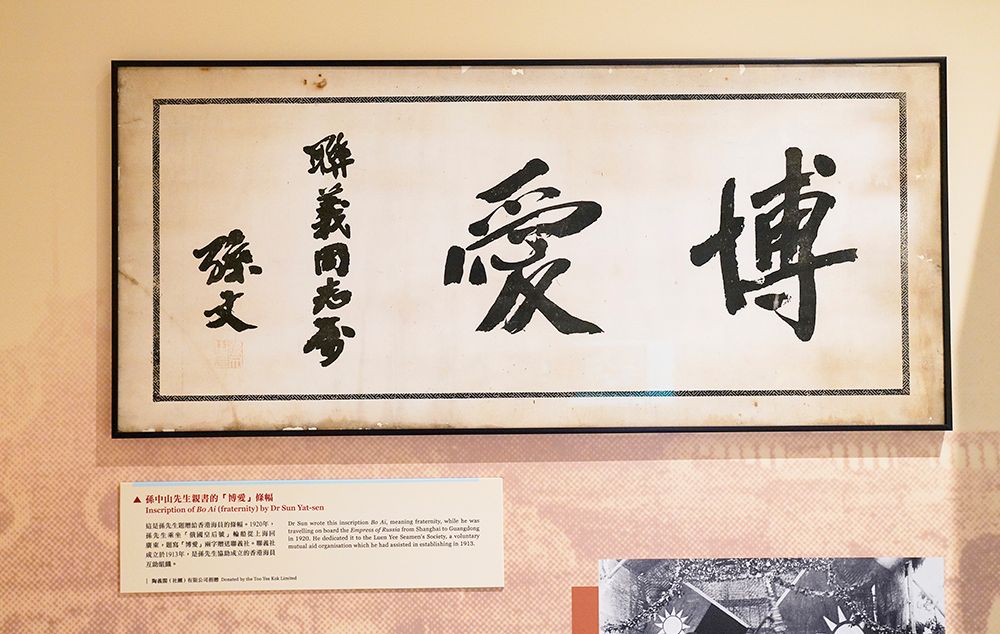 博愛
聯義同志屬
孫文
▲ 孫中山先生親書的「博愛」條幅
Inscription of Bo Ai (fraternity) by Dr Sun Yat-sen
這是孫先生題贈給香港海員的條幅。1920年，
孫先生乘坐「俄國皇后號」輪船從上海回
廣東，題寫「博愛」兩字贈送聯義社。聯義社
成立於1913年，是孫先生協助成立的香港海員
互助組織。
Dr Sun wrote this inscription Bo Ai, meaning fraternity, while he was
travelling on board the Empress of Russia from Shanghai to Guangdong
in 1920. He dedicated it to the Luen Yee Seamen's Society, a voluntary
mutual aid organisation which he had assisted in establishing in 1913.
陶義閣（社團）有限公司捐贈 Donated by the Too Yee Kok Limited